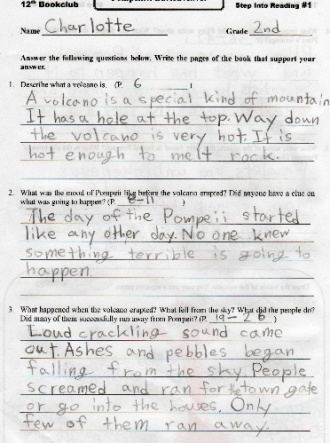 12th Bookclub
Step Into Reading #1
Name Charlotte Grade 2nd
Answer the following questions below. Write the pages of the book that support your
answer.
1. Describe what a volcano is. (P. 6 )
A volcano is a special kind of mountain
It has a hole at the top. Way down
the volcano is very hot. It is
hot enough to melt rock.
2. What was the mood of Pompeii like before the volcano erupted? Did anyone have a clue on
what was going to happen? (P. 8-11 )
The day of the Pompeii started
like any other day. No one knew
something terrible is going to
happen.
3. What happened when the volcano erupted? What fell from the sky? What did the people do?
Did many of them successfully run away from Pompeii? (P. 19-26 )
Loud crackling sound came
out. Ashes and pebbles began
falling from the sky. People
screamed and ran for the town gate
or go into the houses. Only
few of them ran away.